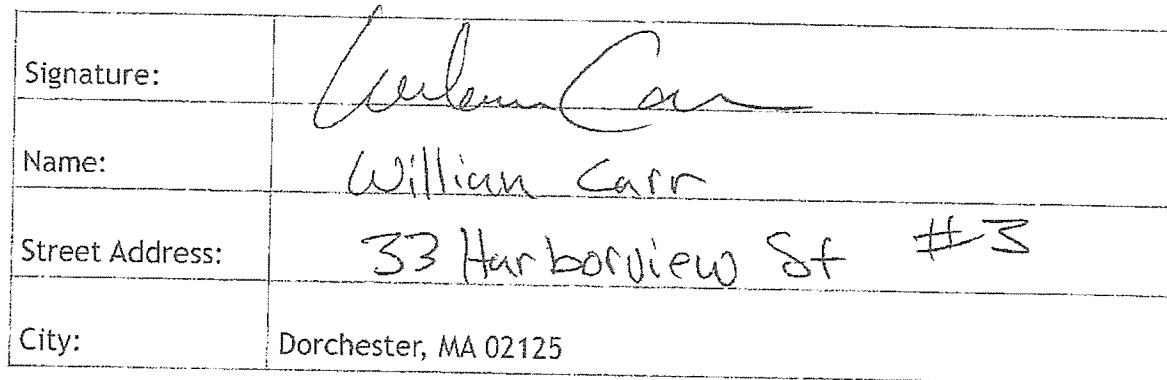 Signature: William Carr
Name: William Carr
Street Address: 33 Harborview St #3
City: Dorchester, MA 02125